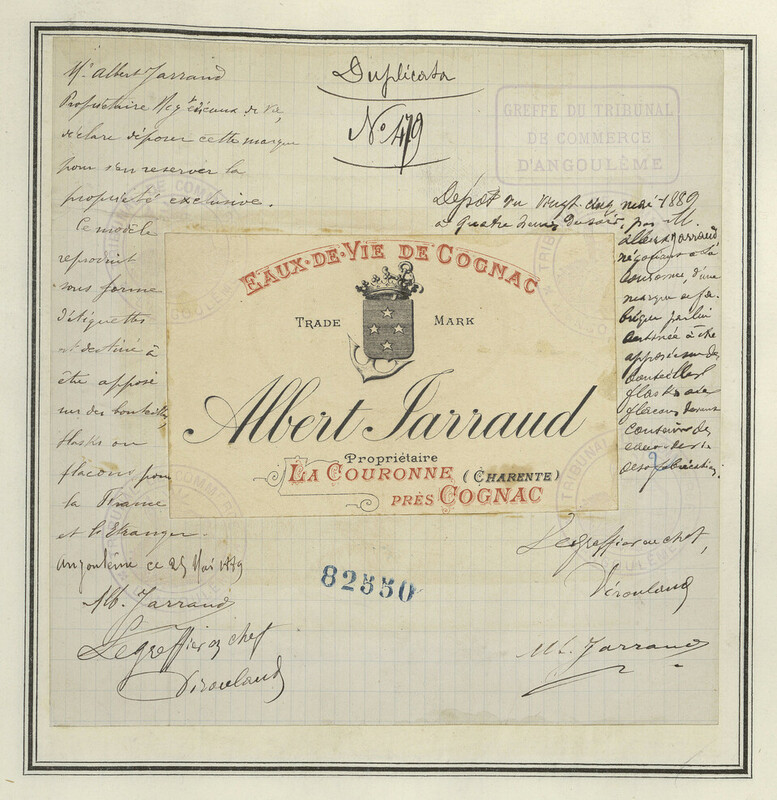 Mr Albert Jarraud
Propriétaire Négt d'eaux de vie,
déclare déposer cette marque
pour s'en reserver la
propriété exclusive.
Ce modèle
reproduit
sous forme
d'étiquettes
est destiné à
être apposé
sur des bouteilles,
flasks ou
flacons pour
la France
et l'Etranger.
Angoulême ce 25 Mai 1889
Alb. Jarraud
Le greffier en chef
Duplicata
No 479
GREFFE DU TRIBUNAL
DE COMMERCE
D'ANGOULÊME
Dépôt du vingt cinq mai 1889
à quatre heures du soir, par M.
Albert Jarraud
négociant à la
Couronne, d'une
marque de fa-
brique par lui
destinée à être
apposée sur des
bouteilles
flasks ou
flacons devant
contenir des
eaux-de-vie
de sa fabrication.
EAUX-DE-VIE DE COGNAC
TRADE MARK
Albert Jarraud
Propriétaire
LA COURONNE (CHARENTE)
PRÈS COGNAC
82550
Le greffier en chef,
Alb. Jarraud